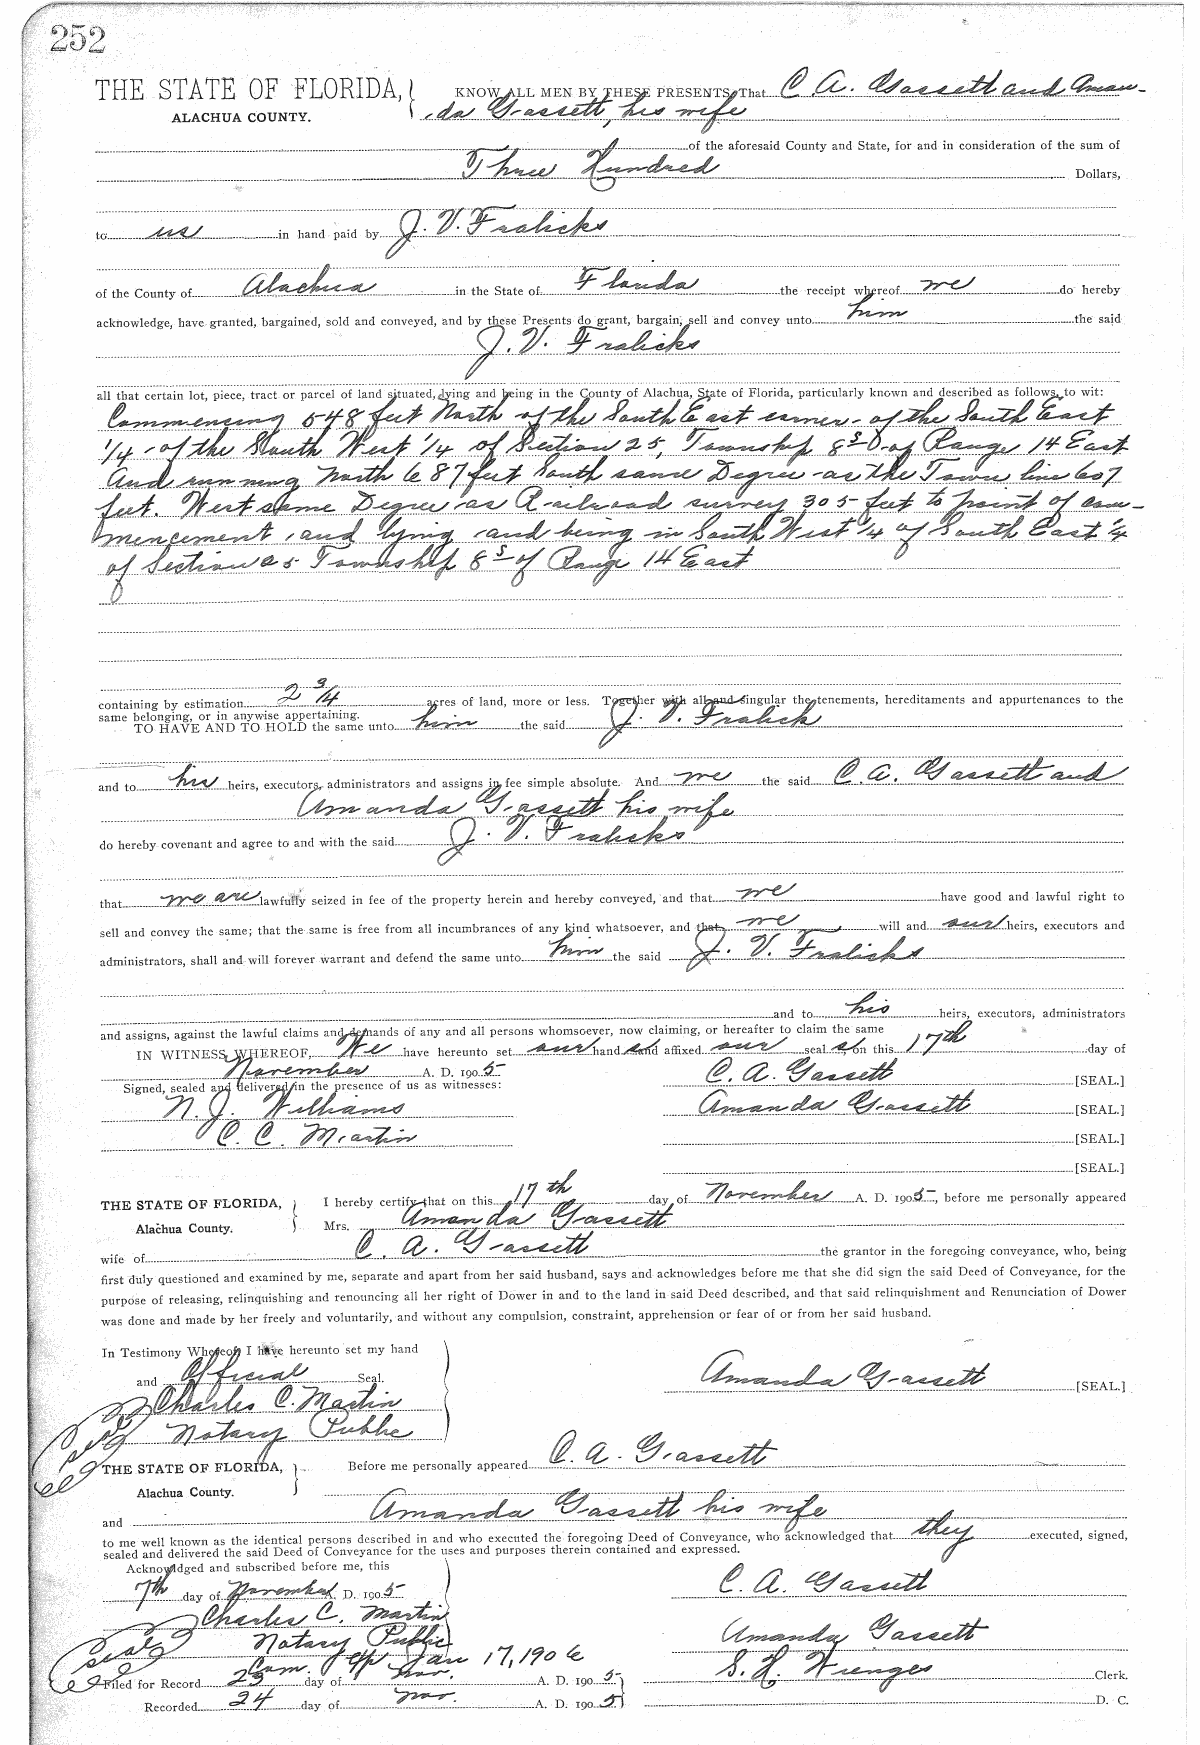 252
THE STATE OF FLORIDA, KNOW ALL MEN BY THESE PRESENTS, That C. A. Gassett and Aman-
ALACHUA COUNTY. da Gassett, his wife
of the aforesaid County and State, for and in consideration of the sum of
Three Hundred Dollars,
to us in hand paid by J. V. Fralicks
of the County of Alachua in the State of Florida the receipt whereof we do hereby
acknowledge, have granted, bargained, sold and conveyed, and by these Presents do grant, bargain, sell and convey unto him the said
J. V. Fralicks
all that certain lot, piece, tract or parcel of land situated, lying and being in the County of Alachua, State of Florida, particularly known and described as follows, to wit:
Commencing 548 feet North of the South East corner of the South East
1/4 of the South West 1/4 of Section 25, Township 8 S of Range 14 East
And running North 687 feet South same Degree as the Town line 607
feet. West same Degree as Railroad survey 305 feet to point of com-
mencement, and lying and being in South West 1/4 of South East 1/4
of Section 25 Township 8 S of Range 14 East
containing by estimation 2 3/4 acres of land, more or less. Together with all and singular the tenements, hereditaments and appurtenances to the
same belonging, or in anywise appertaining.
TO HAVE AND TO HOLD the same unto him the said J. V. Fralick
and to his heirs, executors, administrators and assigns in fee simple absolute. And we the said C. A. Gassett and
Amanda Gassett his wife
do hereby covenant and agree to and with the said J. V. Fralicks
that we are lawfully seized in fee of the property herein and hereby conveyed, and that we have good and lawful right to
sell and convey the same; that the same is free from all incumbrances of any kind whatsoever, and that we will and our heirs, executors and
administrators, shall and will forever warrant and defend the same unto him the said J. V. Fralicks
and to his heirs, executors, administrators
and assigns, against the lawful claims and demands of any and all persons whomsoever, now claiming, or hereafter to claim the same
IN WITNESS WHEREOF, We have hereunto set our hand s and affixed our seal s, on this 17th day of
November A. D. 1905
Signed, sealed and delivered in the presence of us as witnesses: C. A. Gassett [SEAL.]
N. J. Williams Amanda Gassett [SEAL.]
C. C. Martin [SEAL.]
[SEAL.]
THE STATE OF FLORIDA, I hereby certify that on this 17th day of November A. D. 1905, before me personally appeared
Alachua County. Mrs. Amanda Gassett
wife of C. A. Gassett the grantor in the foregoing conveyance, who, being
first duly questioned and examined by me, separate and apart from her said husband, says and acknowledges before me that she did sign the said Deed of Conveyance, for the
purpose of releasing, relinquishing and renouncing all her right of Dower in and to the land in said Deed described, and that said relinquishment and Renunciation of Dower
was done and made by her freely and voluntarily, and without any compulsion, constraint, apprehension or fear of or from her said husband.
In Testimony Whereof, I have hereunto set my hand
and Official Seal. Amanda Gassett [SEAL.]
Charles C. Martin
seal Notary Public
THE STATE OF FLORIDA, Before me personally appeared C. A. Gassett
Alachua County.
and Amanda Gassett his wife
to me well known as the identical persons described in and who executed the foregoing Deed of Conveyance, who acknowledged that they executed, signed,
sealed and delivered the said Deed of Conveyance for the uses and purposes therein contained and expressed.
Acknowledged and subscribed before me, this
7th day of November A. D. 1905 C. A. Gassett
Charles C. Martin
seal Notary Public Amanda Gassett
Com. Exp Jan 17, 1906 S. H. Wienges Clerk.
Filed for Record 23 day of Nov. A. D. 1905
Recorded 24 day of Nov. A. D. 1905 D. C.